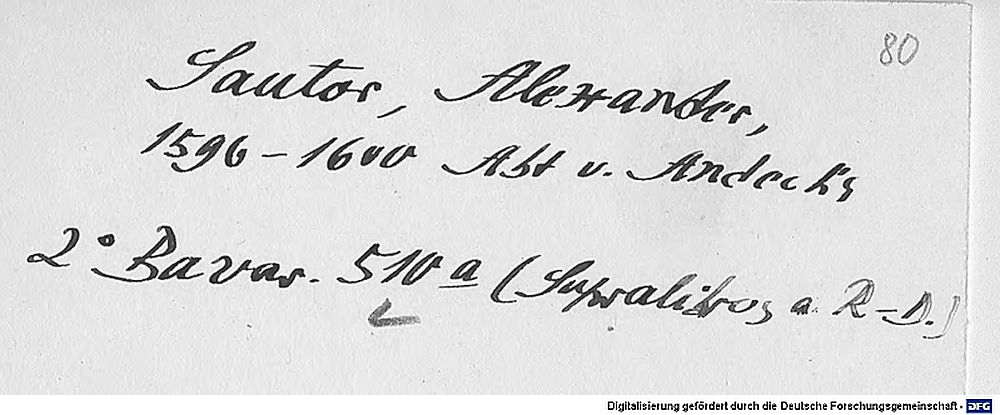 80
Sautor, Alexander,
1596 - 1600 Abt v. Andechs
2° Bavar. 510 a (Supralibros a. R-D.)
Digitalisierung gefördert durch die Deutsche Forschungsgemeinschaft - DFG